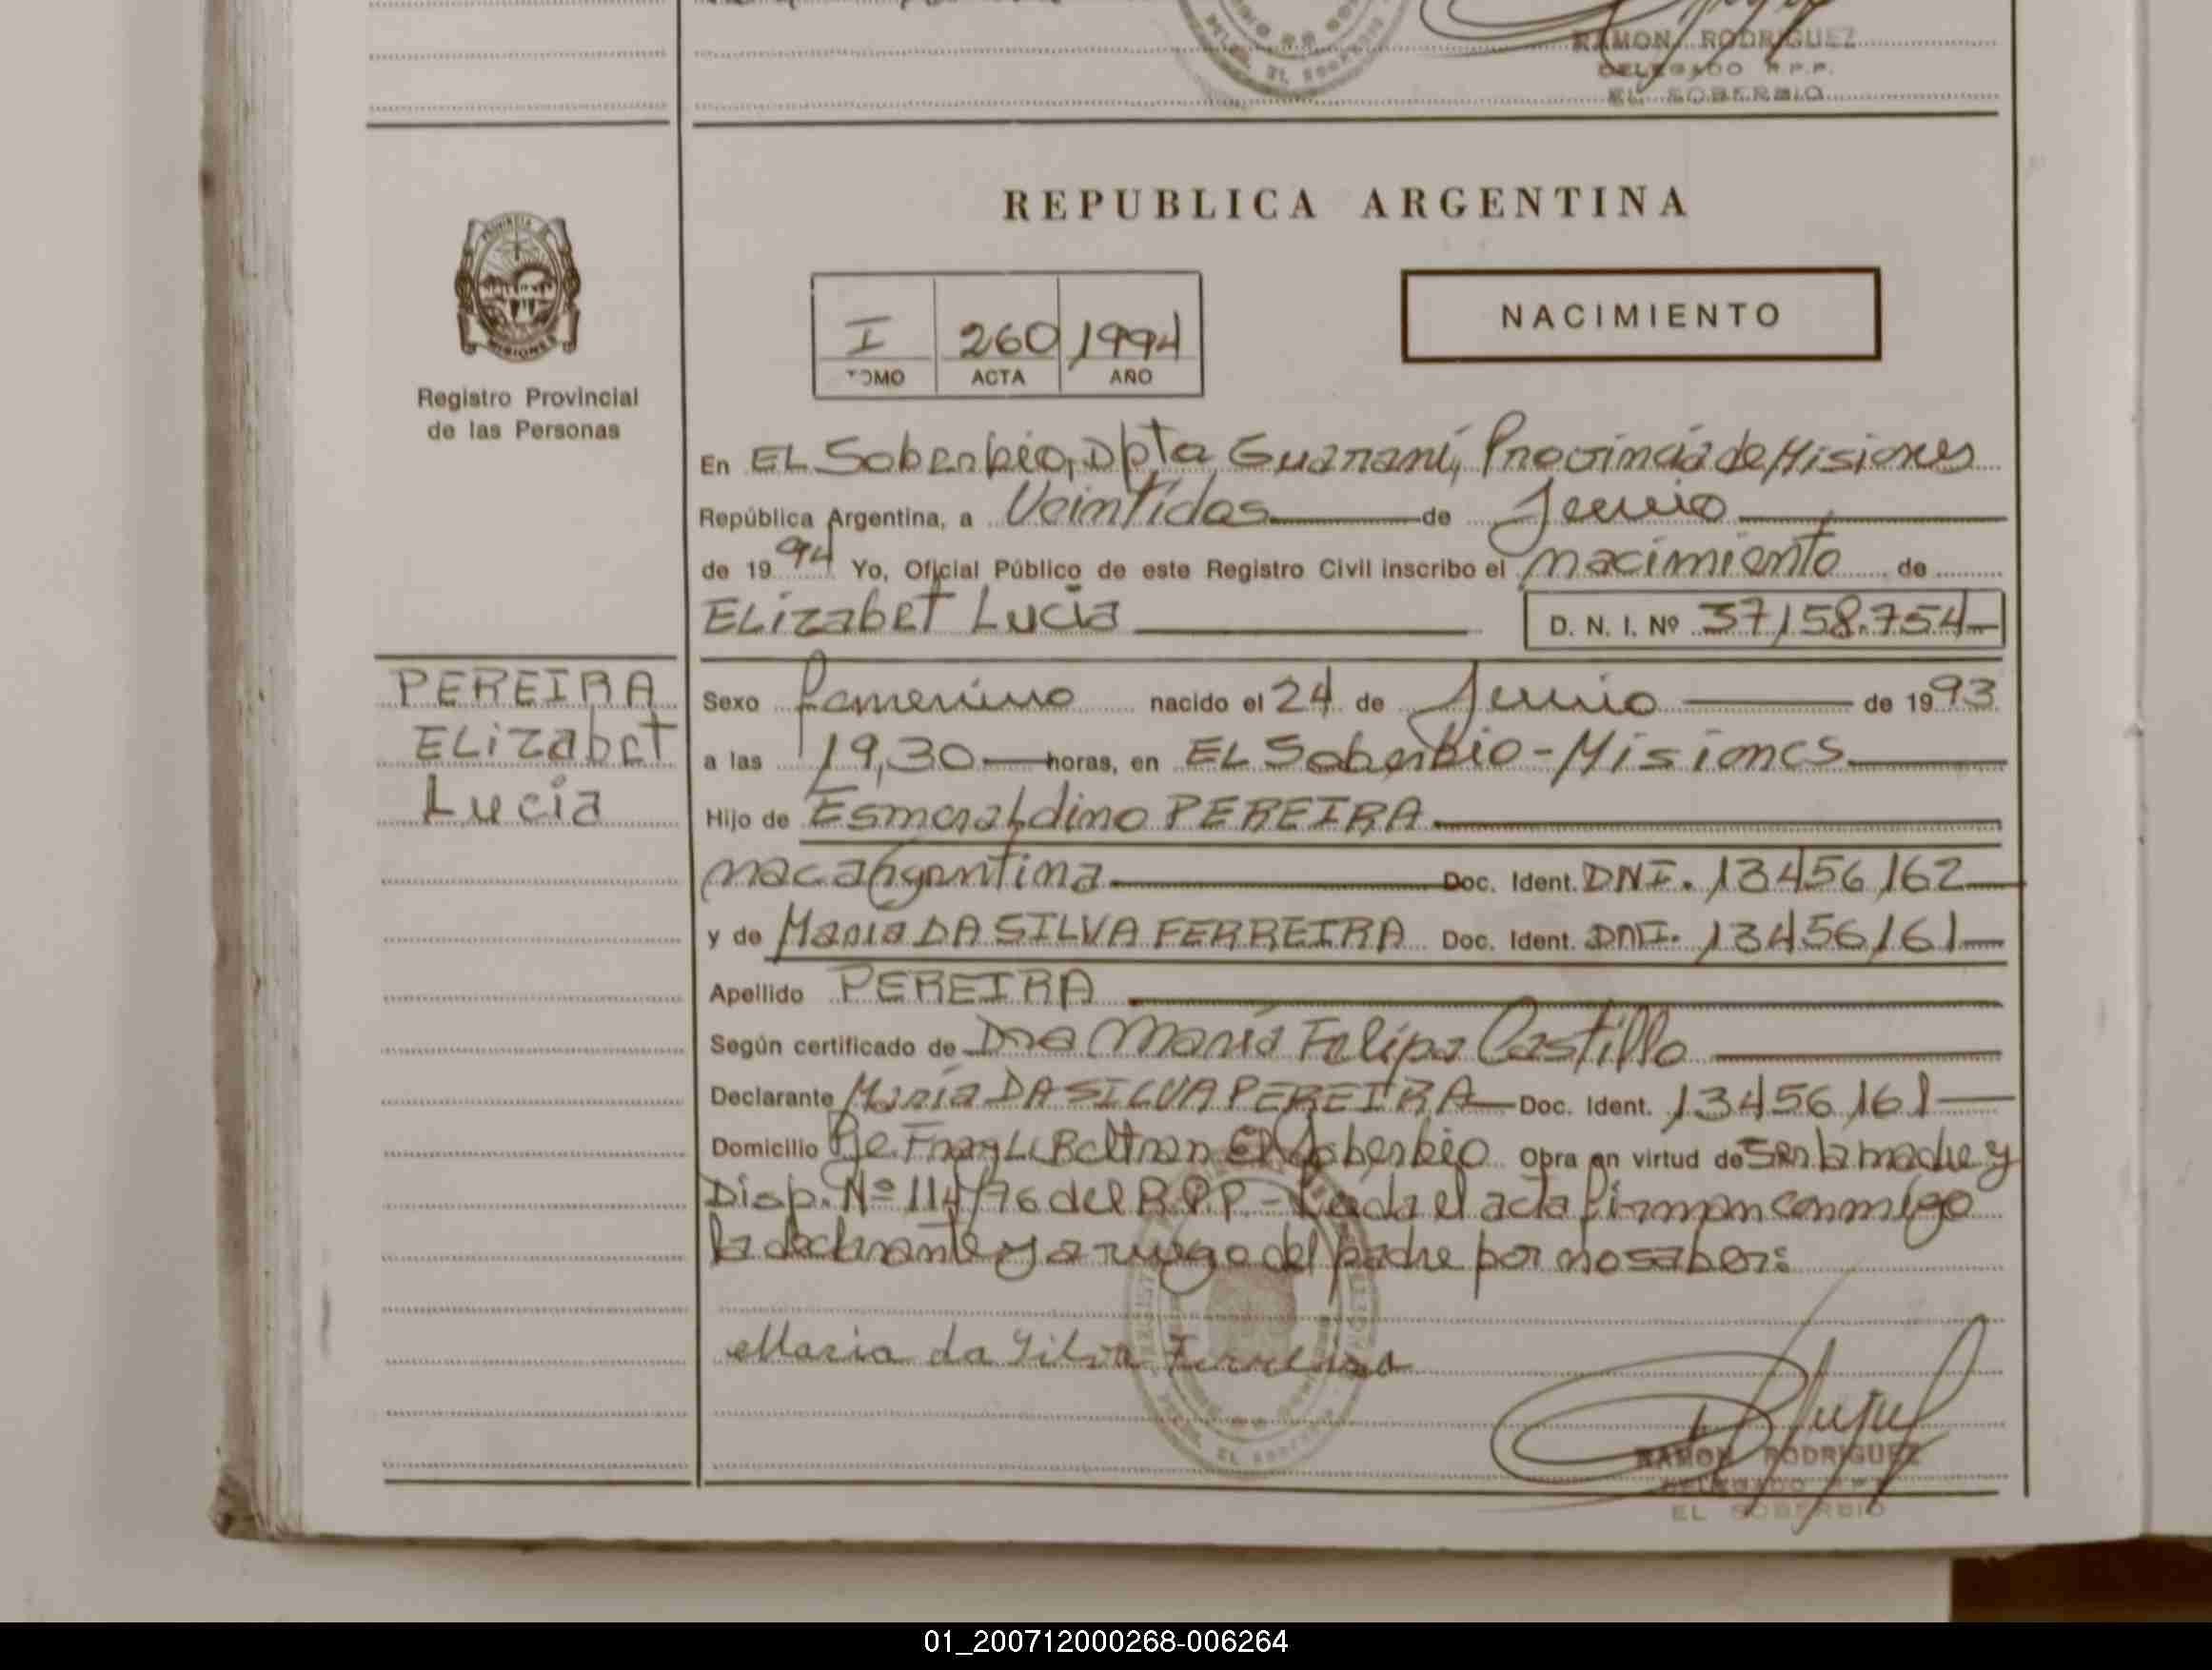 RAMON RODRIGUEZ
DELEGADO R.P.P.
EL SOBERBIO
REPUBLICA ARGENTINA
PROVINCIA DE
MISIONES
Registro Provincial
de las Personas
I 260 1994
TOMO ACTA AÑO
NACIMIENTO
En EL Soberbio, Dpto Guaraní, Provincia de Misiones
República Argentina, a Veintidos de Junio
de 1994 Yo, Oficial Público de este Registro Civil inscribo el nacimiento de
ELizabet Lucia D. N. I. Nº 37,158.754
PEREIRA
ELizabet
Lucia
Sexo femenino nacido el 24 de Junio de 1993
a las 19,30 horas, en EL Soberbio - Misiones
Hijo de EsmeraLdino PEREIRA
nac argentina Doc. Ident. DNI. 13456,162
y de Maria DA SILVA FERREIRA Doc. Ident. DNI. 13456,161
Apellido PEREIRA
Según certificado de Dra Maria Felipa Castillo
Declarante Maria DA SILVA PEREIRA Doc. Ident. 13456,161
Domicilio Pje. Fray L. Beltran El Soberbio Obra en virtud de Ser la madre y
Disp. Nº 114/76 del R.P.P. - Leida el acta firman conmigo
la declarante y a ruego del padre por no saber:
Maria da Silva Ferreira
RAMON RODRIGUEZ
DELEGADO R.P.P.
EL SOBERBIO
01_200712000268-006264